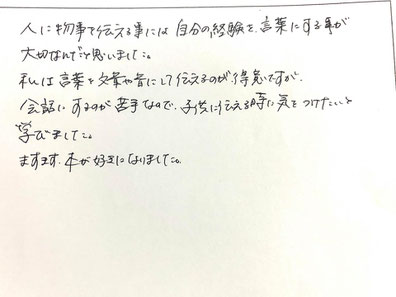 人に物事を伝える事には自分の経験を、言葉にする事が
大切なんだと思いました。
私は言葉を文章や音にして伝えるのが得意ですが、
会話にするのが苦手なので、子供に伝える時に気をつけたいと
学びました。
ますます、本が好きになりました。